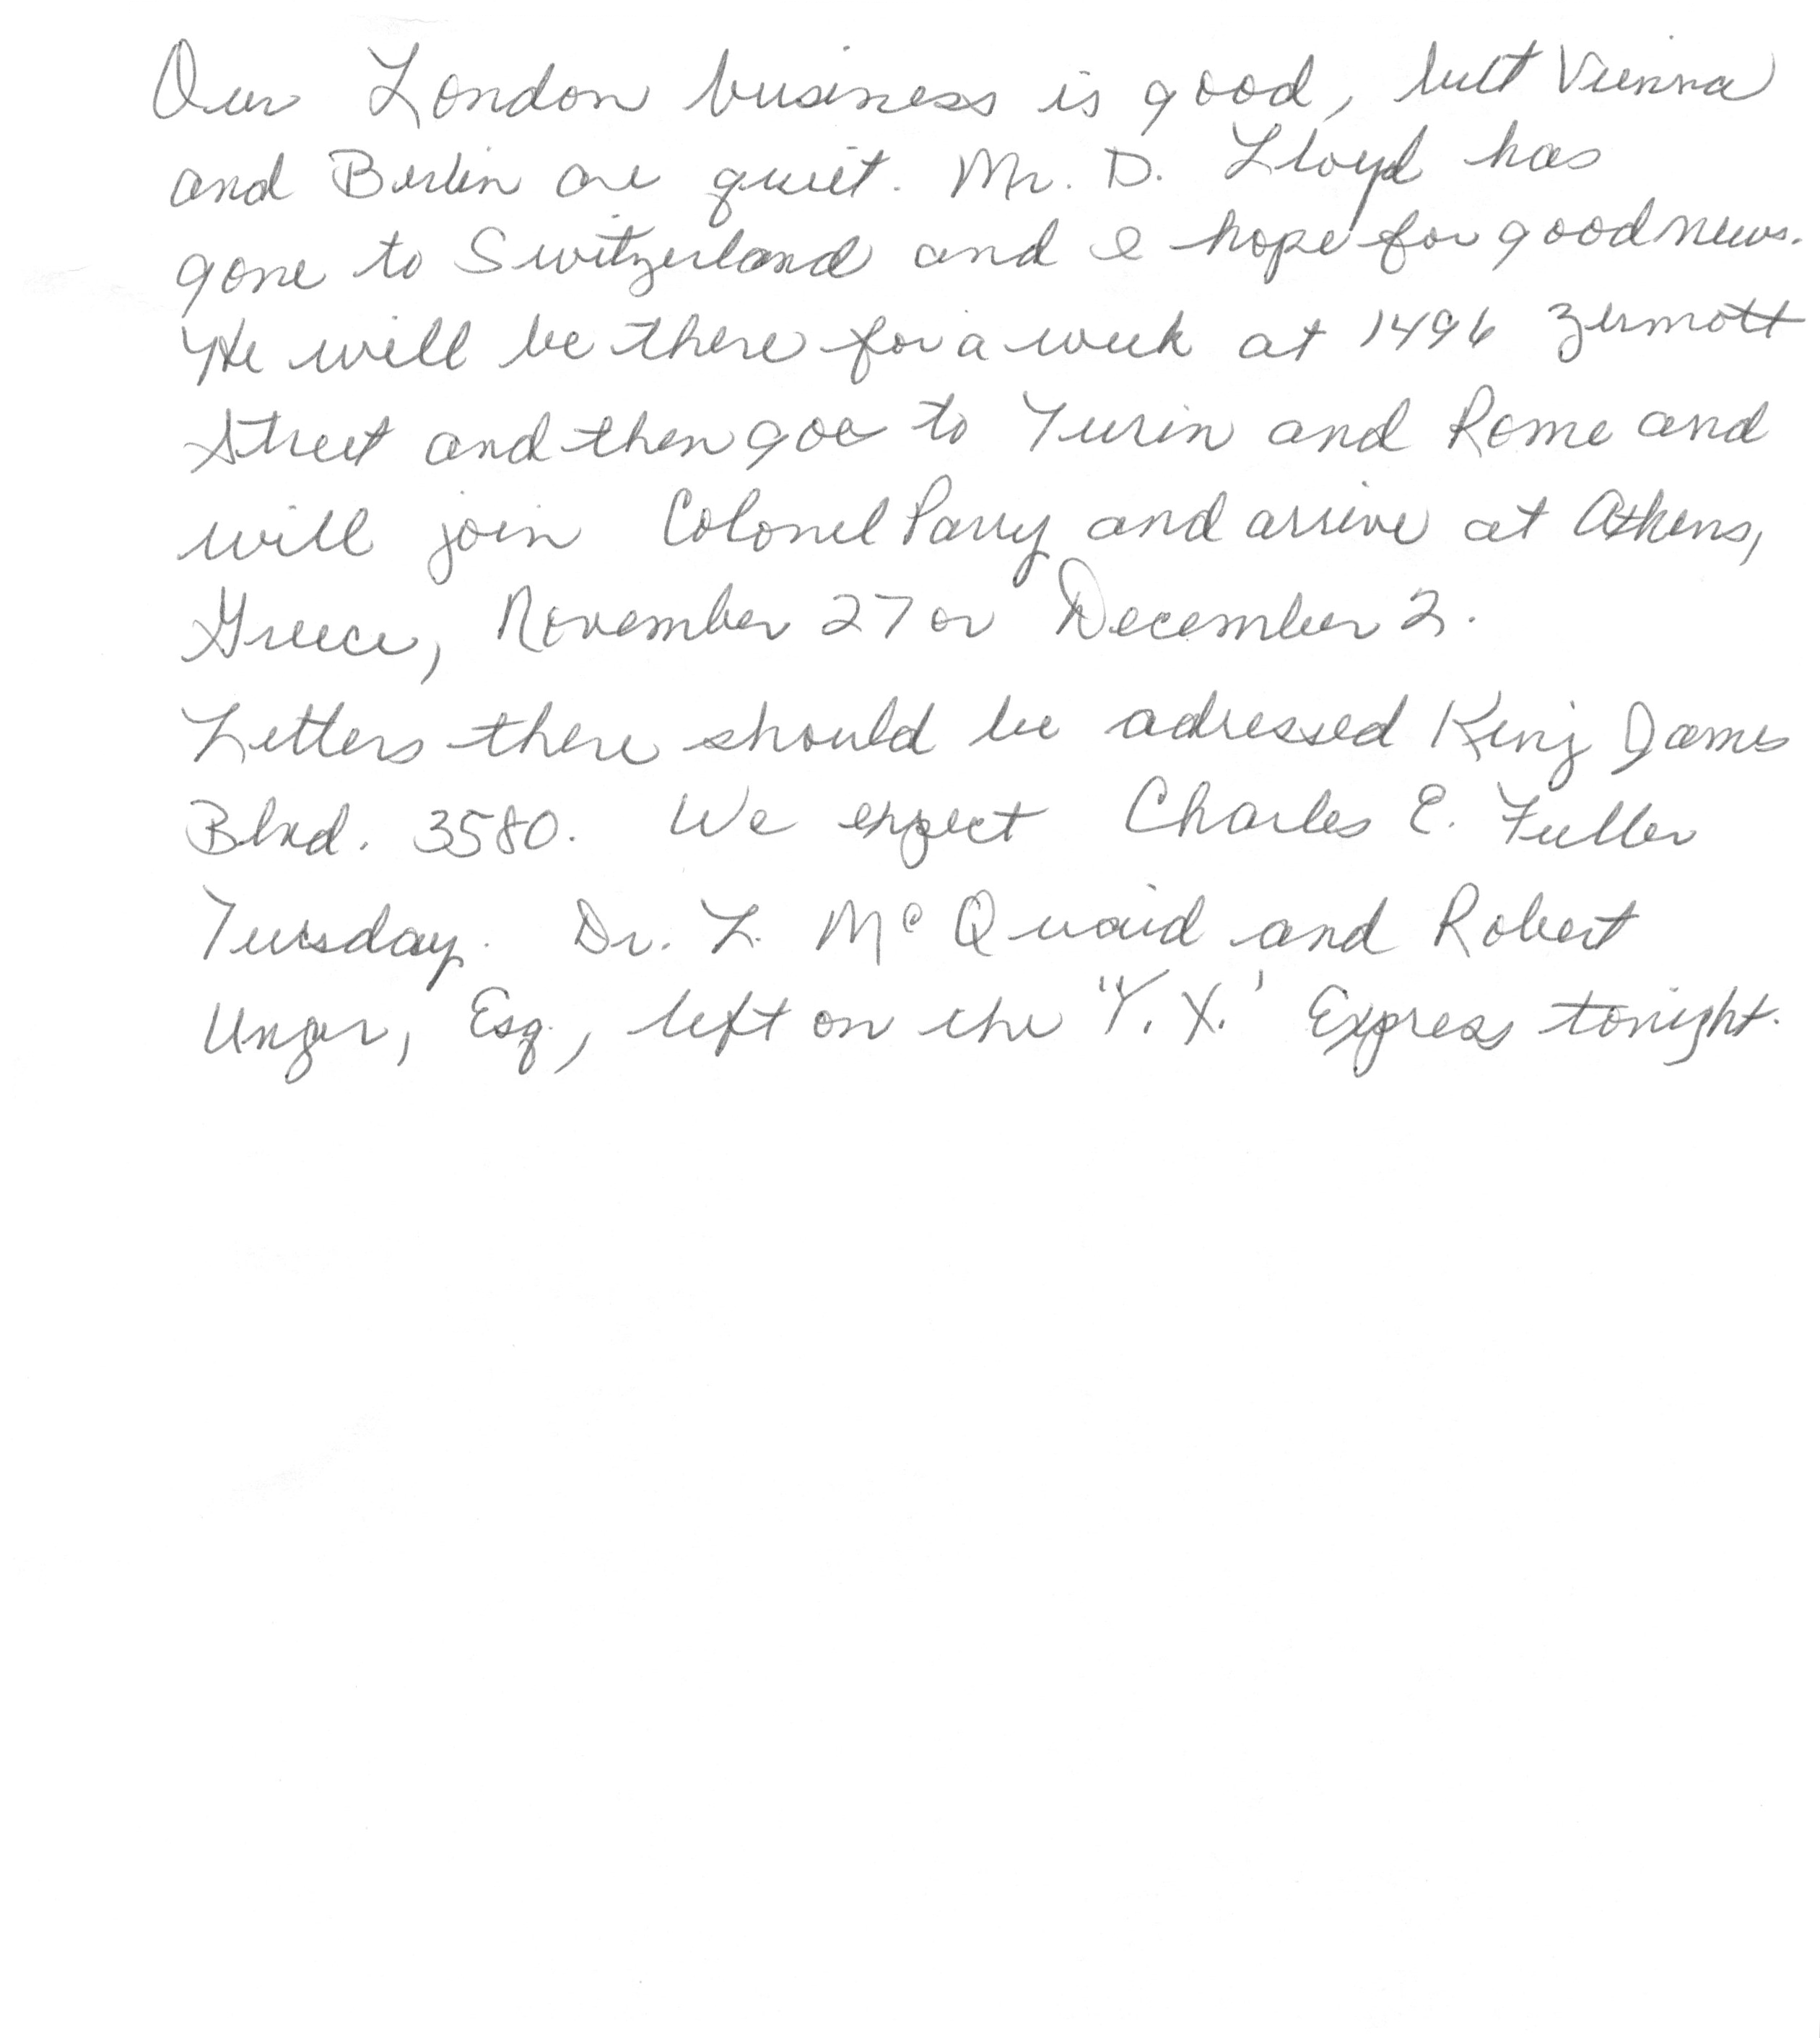 Our London business is good, but Vienna
and Berlin are quiet. Mr. D. Lloyd has
gone to Switzerland and I hope for good news.
He will be there for a week at 1496 Zermott
Street and then goe to Turin and Rome and
will join Colonel Parry and arrive at Athens,
Greece, November 27 or December 2.
Letters there should be adressed King James
Blvd. 3580. We expect Charles E. Fuller
Tuesday. Dr. L. McQuaid and Robert
Unger, Esq., left on the "Y. X.' Express tonight.